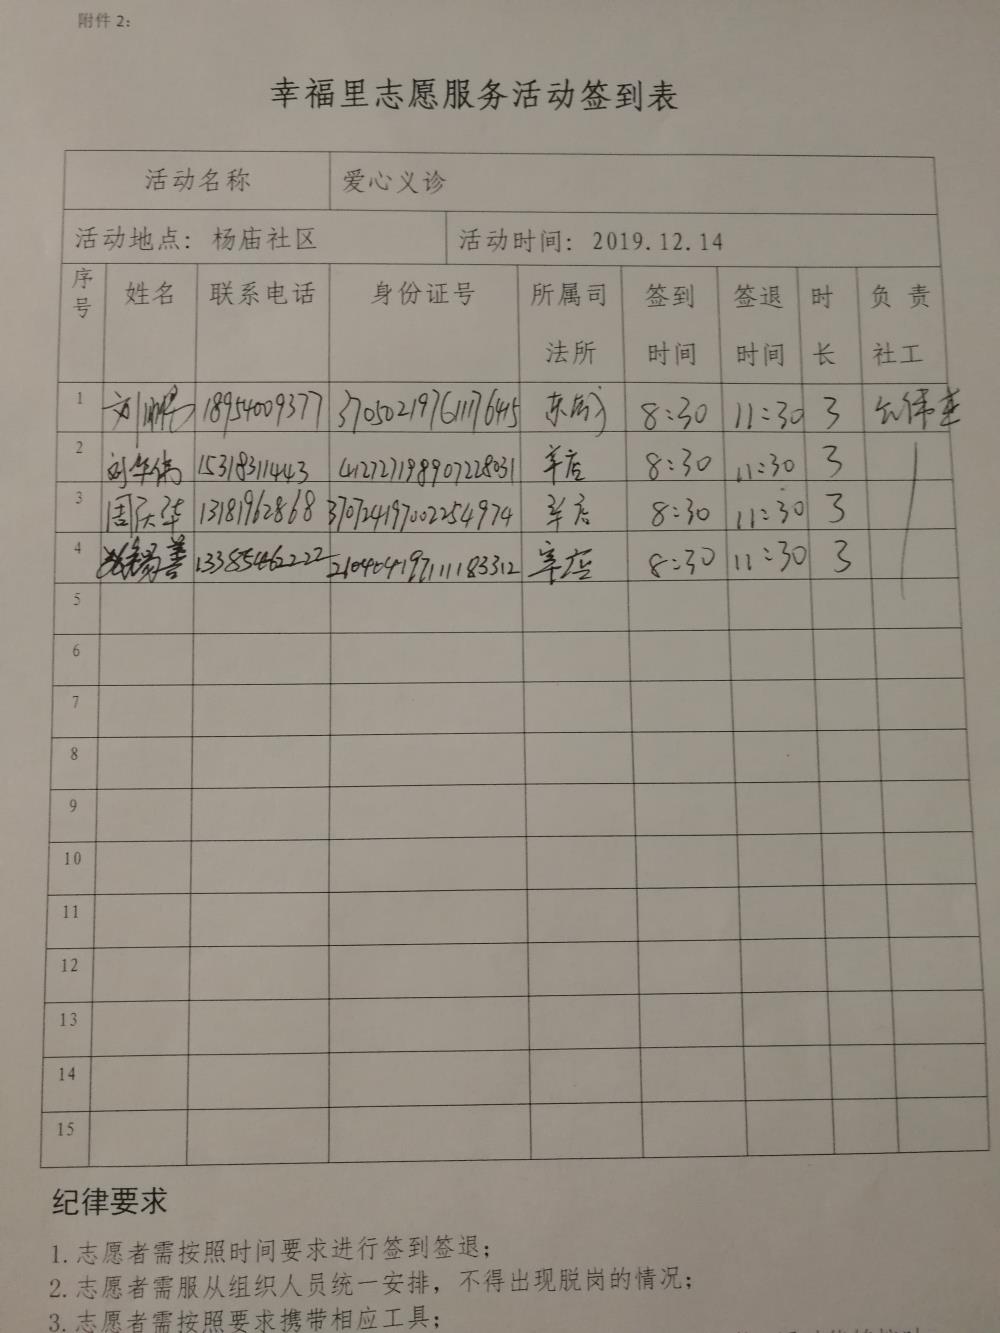 附件2:
幸福里志愿服务活动签到表
活动名称 爱心义诊
活动地点: 杨庙社区 活动时间: 2019.12.14
序号 姓名 联系电话 身份证号 所属司法所 签到时间 签退时间 时长 负责社工
1 18954009377 370502197611176415 8:30 11:30 3
2 刘华伟 15318311443 412727198907228031 辛店 8:30 11:30 3
3 周庆华 13181962868 370724197002254974 辛店 8:30 11:30 3
4 13385462222 210404197111183312 辛店 8:30 11:30 3
5
6
7
8
9
10
11
12
13
14
15
纪律要求
1.志愿者需按照时间要求进行签到签退;
2.志愿者需服从组织人员统一安排，不得出现脱岗的情况;
3.志愿者需按照要求携带相应工具;